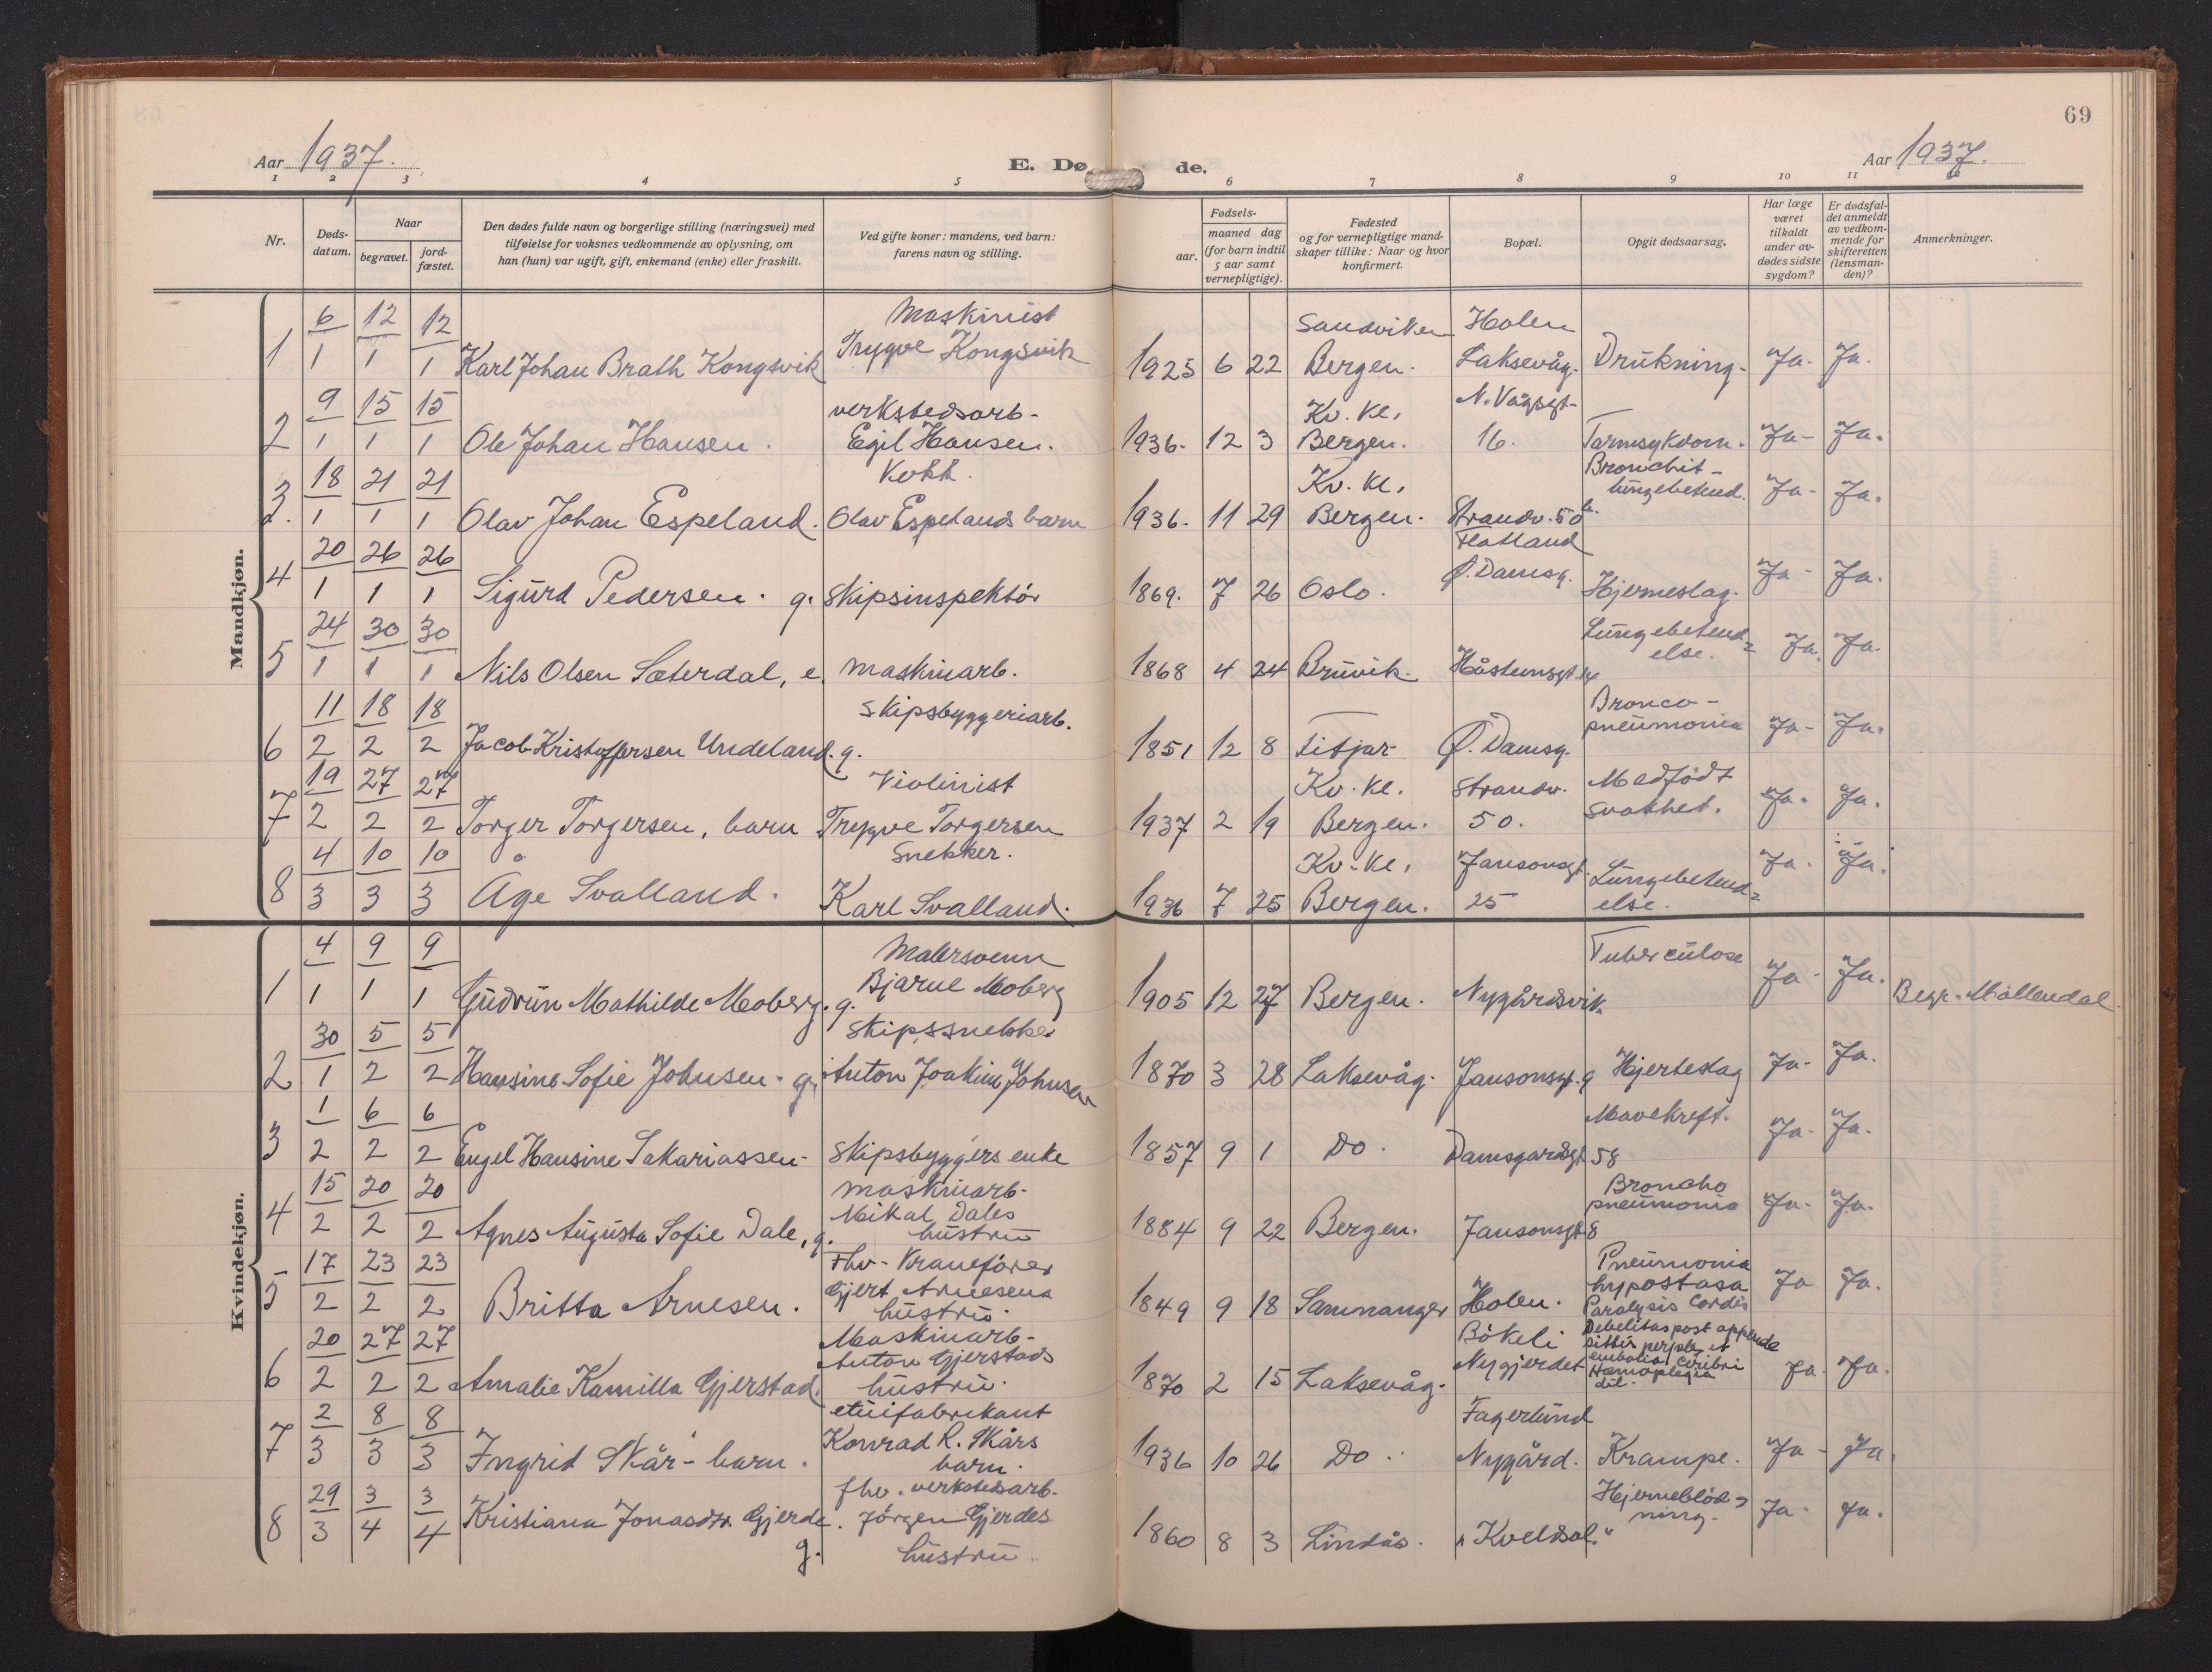 69
Aar 1937. E. Dø de. Aar 1937.
1 2 3 4 5 6 7 8 9 10 11
Nr. Døds-datum. Naar begravet. jord-fæstet. Den dødes fulde navn og borgerlige stilling (næringsvei) med tilføielse for voksnes vedkommende av oplysning, om han (hun) var ugift, gift, enkemand (enke) eller fraskilt. Ved gifte koner: mandens, ved barn: farens navn og stilling. Fødsels- aar. maaned dag (for barn indtil 5 aar samt vernepligtige). Fødested og for vernepligtige mandskaper tillike: Naar og hvor konfirmert. Bopæl. Opgit dødsaarsag. Har læge været tilkaldt under avdødes sidste sygdom? Er dødsfaldet anmeldt av vedkommende for skifteretten (lensmanden)? Anmerkninger.
Mandkjøn.
1 6/1 12/1 12/1 Karl Johan Brath Kongsvik Maskinist Trygve Kongsvik 1925 6 22 Sandviken Bergen. Holen Laksevåg. Drukning. Ja. Ja.
2 9/1 15/1 15/1 Ole Johan Hansen. verkstedsarb. Egil Hansen. 1936. 12 3 Kv. Kl. Bergen. N. Vågsgt. 16. Tarmsykdom. Ja- Ja.
3 18/1 21/1 21/1 Olav Johan Espeland. Kokk. Olav Espelands barn 1936. 11 29 Kv. Kl. Bergen. Strandv. 50 Bronchit- lungebetend. Ja- Ja.
4 20/1 26/1 26/1 Sigurd Pedersen. g. Skipsinspektør 1869. 7 26 Oslo. Flatland Ø. Damsg. Hjerneslag. Ja- Ja.
5 24/1 30/1 30/1 Nils Olsen Sæterdal, e. maskinarb. 1868 4 24 Bruvik. Håsteinsgt. 14 Lungebetend=else. Ja. Ja.
6 11/2 18/2 18/2 Jacob Kristoffersen Undeland. g. Skipsbyggeriarb. 1851 12 8 Fitjar Ø. Damsg. Bronco-pneumonia Ja- Ja.
7 19/2 27/2 27/2 Torger Torgersen, barn Violinist Trygve Torgersen 1937 2 19 Kv. Kl. Bergen. Strandv. 50. Medfødt svakhet. Ja. Ja.
8 4/3 10/3 10/3 Åge Svalland. Snekker. Karl Svalland. 1936 7 25 Kv. Kl. Bergen. Jansonsgt. 25 Lungebetend=else. Ja. Ja.
Kvindekjøn.
1 4/1 9/1 9/1 Gudrun Mathilde Moberg. g. Malersvenn Bjarne Moberg 1905 12 27 Bergen. Nygårdsvik. Tuberculose Ja- Ja. Begr. Møllendal.
2 30/1 5/2 5/2 Hansine Sofie Johnsen. g. Skipssnekker Anton Joakim Johnsen 1870 3 28 Laksevåg. Jansonsgt. 9 Hjerteslag Ja- Ja.
3 1/2 6/2 6/2 Engel Hansine Sakariassen- Skipsbyggers enke 1857 9 1 Do. Damsgårdsgt. 58 Mavekreft. Ja- Ja.
4 15/2 20/2 20/2 Agnes Augusta Sofie Dale, g. maskinarb. Mikal Dales hustru 1884 9 22 Bergen. Jansonsgt. 8 Broncho pneumonia Ja- Ja.
5 17/2 23/2 23/2 Britta Arnesen. Fhv. Kranefører Gjert Arnesens hustru. 1849 9 18 Samnanger Holen. Pneumonia hypostasa Paralysis Cordis Ja Ja.
6 20/2 27/2 27/2 Amalie Kamilla Gjerstad. Maskinarb. Anton Gjerstads hustru. 1870 2 15 Laksevåg. Bøkeli Nygjerdet Debelitas post appende sittis embolia Ceribri Hæmoplegia Ja. Ja.
7 2/3 8/3 8/3 Ingrid Skår- barn. etuifabrikant Konrad R. Skårs barn. 1936 10 26 Do. Fagerlund Nygård. Krampe. Ja- Ja.
8 29/3 3/4 3/4 Kristiana Jonasdtr. Gjerde. g. fhv. verkstedsarb. Jørgen Gjerdes hustru. 1860 8 3 Lindås. "Kveldsol." Hjerneblød=ning. Ja- Ja.